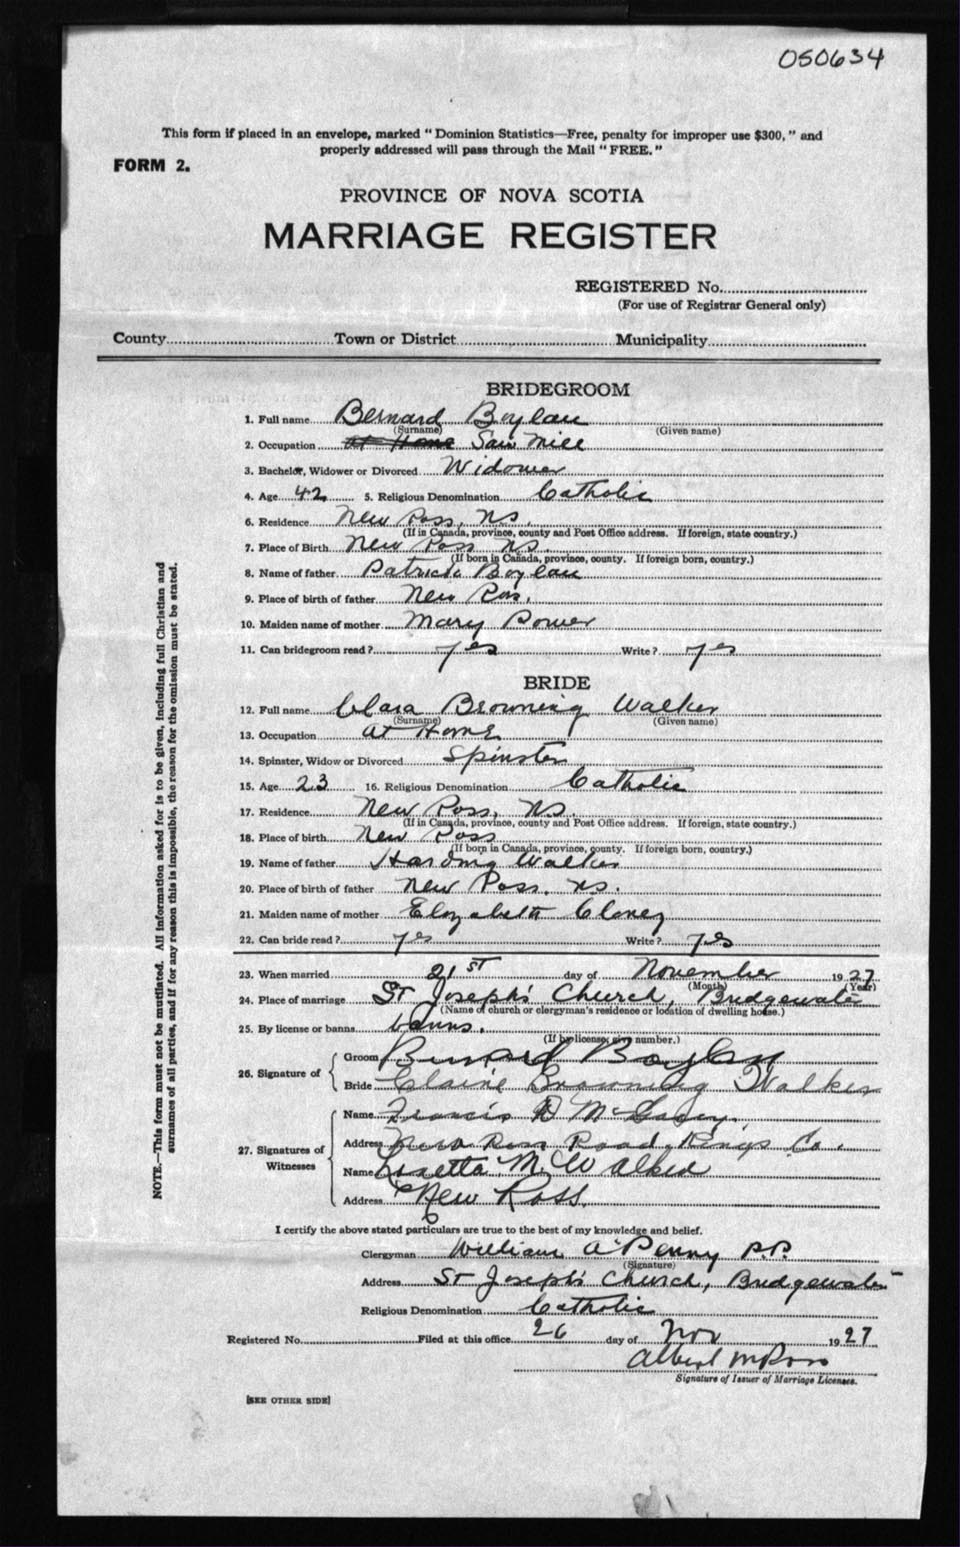 050634
This form if placed in an envelope, marked " Dominion Statistics—Free, penalty for improper use $300, " and
properly addressed will pass through the Mail " FREE. "
FORM 2.
PROVINCE OF NOVA SCOTIA
MARRIAGE REGISTER
REGISTERED No.
(For use of Registrar General only)
County Town or District Municipality
BRIDEGROOM
1. Full name Bernard Boylan
(Surname) (Given name)
2. Occupation at Home Saw Mill
3. Bachelor, Widower or Divorced Widower
4. Age 42 5. Religious Denomination Catholic
6. Residence New Ross, NS.
(If in Canada, province, county and Post Office address. If foreign, state country.)
7. Place of Birth New Ross NS.
(If born in Canada, province, county. If foreign born, country.)
8. Name of father Patrick Boylan
9. Place of birth of father New Ross.
10. Maiden name of mother Mary Power
11. Can bridegroom read? yes Write? yes
BRIDE
12. Full name Clara Browning Walker
(Surname) (Given name)
13. Occupation at Home
14. Spinster, Widow or Divorced Spinster
15. Age 23 16. Religious Denomination Catholic
17. Residence New Ross, NS.
(If in Canada, province, county and Post Office address. If foreign, state country.)
18. Place of birth New Ross
(If born in Canada, province, county. If foreign born, country.)
19. Name of father Harding Walker
20. Place of birth of father New Ross. NS.
21. Maiden name of mother Elizabeth
22. Can bride read? yes Write? yes
23. When married 21st day of November 1927
(Month) (Year)
24. Place of marriage St Joseph's Church, Bridgewater
(Name of church or clergyman's residence or location of dwelling house.)
25. By license or banns banns.
(If by license, give number.)
26. Signature of
Groom Bernard Boylan
Bride Claire Browning Walker
27. Signatures of Witnesses
Name Francis D
Address New Ross Road, Kings Co.
Name Lizetta M. Walker
Address New Ross.
I certify the above stated particulars are true to the best of my knowledge and belief.
Clergyman William A Penny P.P.
(Signature)
Address St Joseph's Church, Bridgewater
Religious Denomination Catholic
Registered No. Filed at this office 26 day of Nov 1927
Albert M Ross
Signature of Issuer of Marriage Licenses.
[SEE OTHER SIDE]
NOTE.—This form must not be mutilated. All information asked for is to be given, including full Christian and
surnames of all parties, and if for any reason this is impossible, the reason for the omission must be stated.